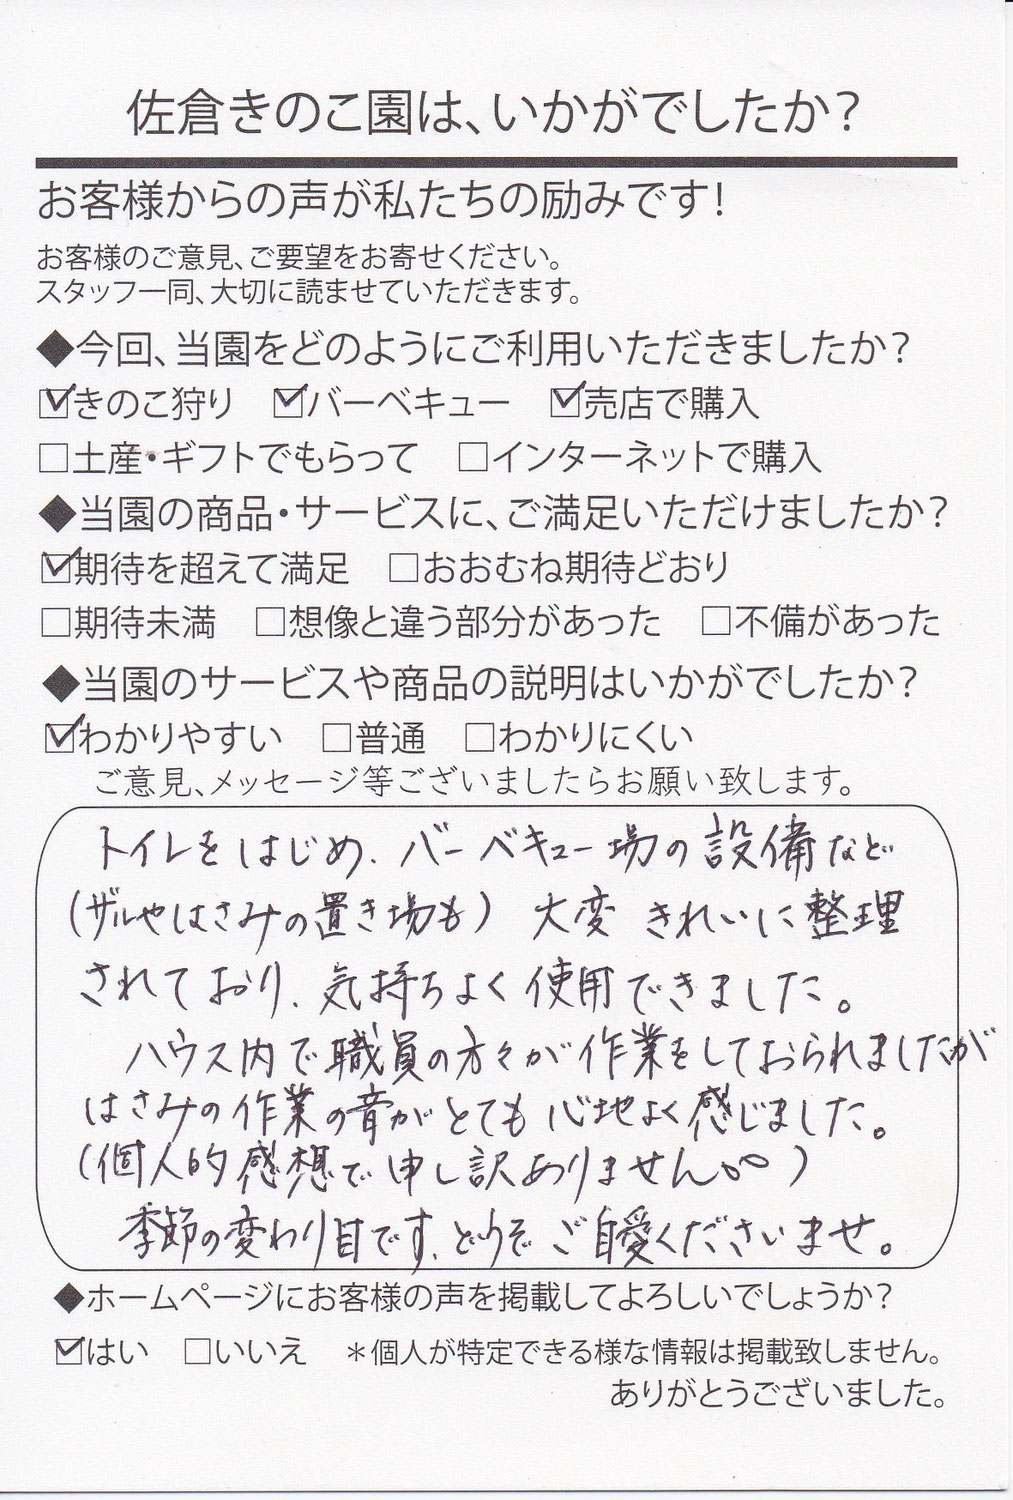 佐倉きのこ園は、いかがでしたか？
お客様からの声が私たちの励みです！
お客様のご意見、ご要望をお寄せください。
スタッフ一同、大切に読ませていただきます。
◆今回、当園をどのようにご利用いただきましたか？
☑きのこ狩り ☑バーベキュー ☑売店で購入
□土産・ギフトでもらって □インターネットで購入
◆当園の商品・サービスに、ご満足いただけましたか？
☑期待を超えて満足 □おおむね期待どおり
□期待未満 □想像と違う部分があった □不備があった
◆当園のサービスや商品の説明はいかがでしたか？
☑わかりやすい □普通 □わかりにくい
ご意見、メッセージ等ございましたらお願い致します。
トイレをはじめ、バーベキュー場の設備など
（ザルやはさみの置き場も）大変きれいに整理
されており、気持ちよく使用できました。
ハウス内で職員の方々が作業をしておられましたが
はさみの作業の音がとても心地よく感じました。
（個人的感想で申し訳ありません）
季節の変わり目です、どうぞご自愛くださいませ。
◆ホームページにお客様の声を掲載してよろしいでしょうか？
☑はい □いいえ ＊個人が特定できる様な情報は掲載致しません。
ありがとうございました。